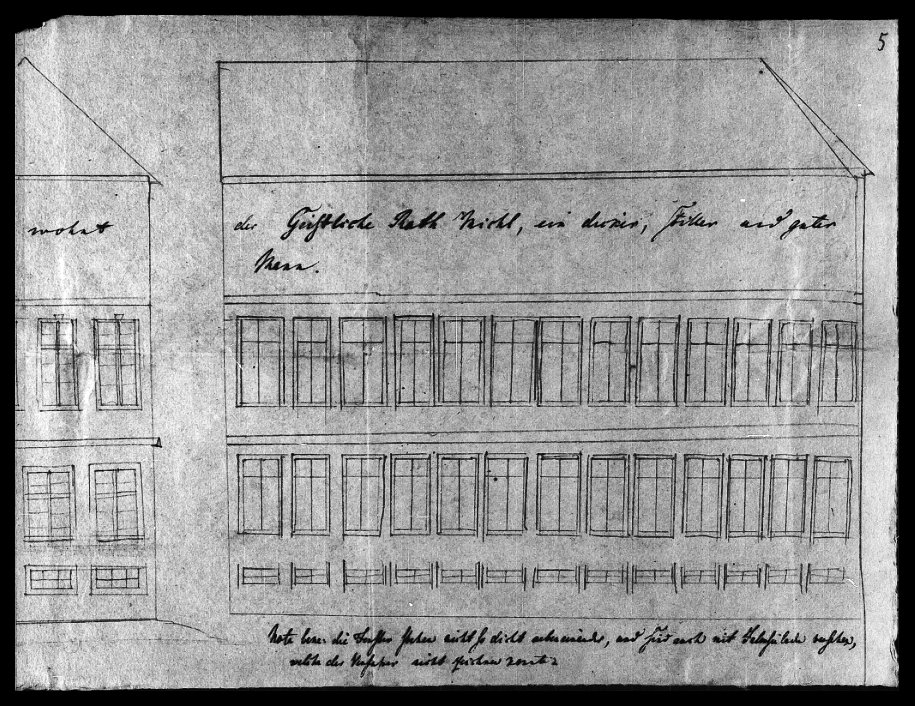 5
wohnt
der Geistliche Rath Michl, ein dicker, stiller und guter
Mann.
Nota bene: die Fenster stehen nicht so dicht aneinander, und sind auch mit versehen,
welche der Verfasser nicht zeichnen